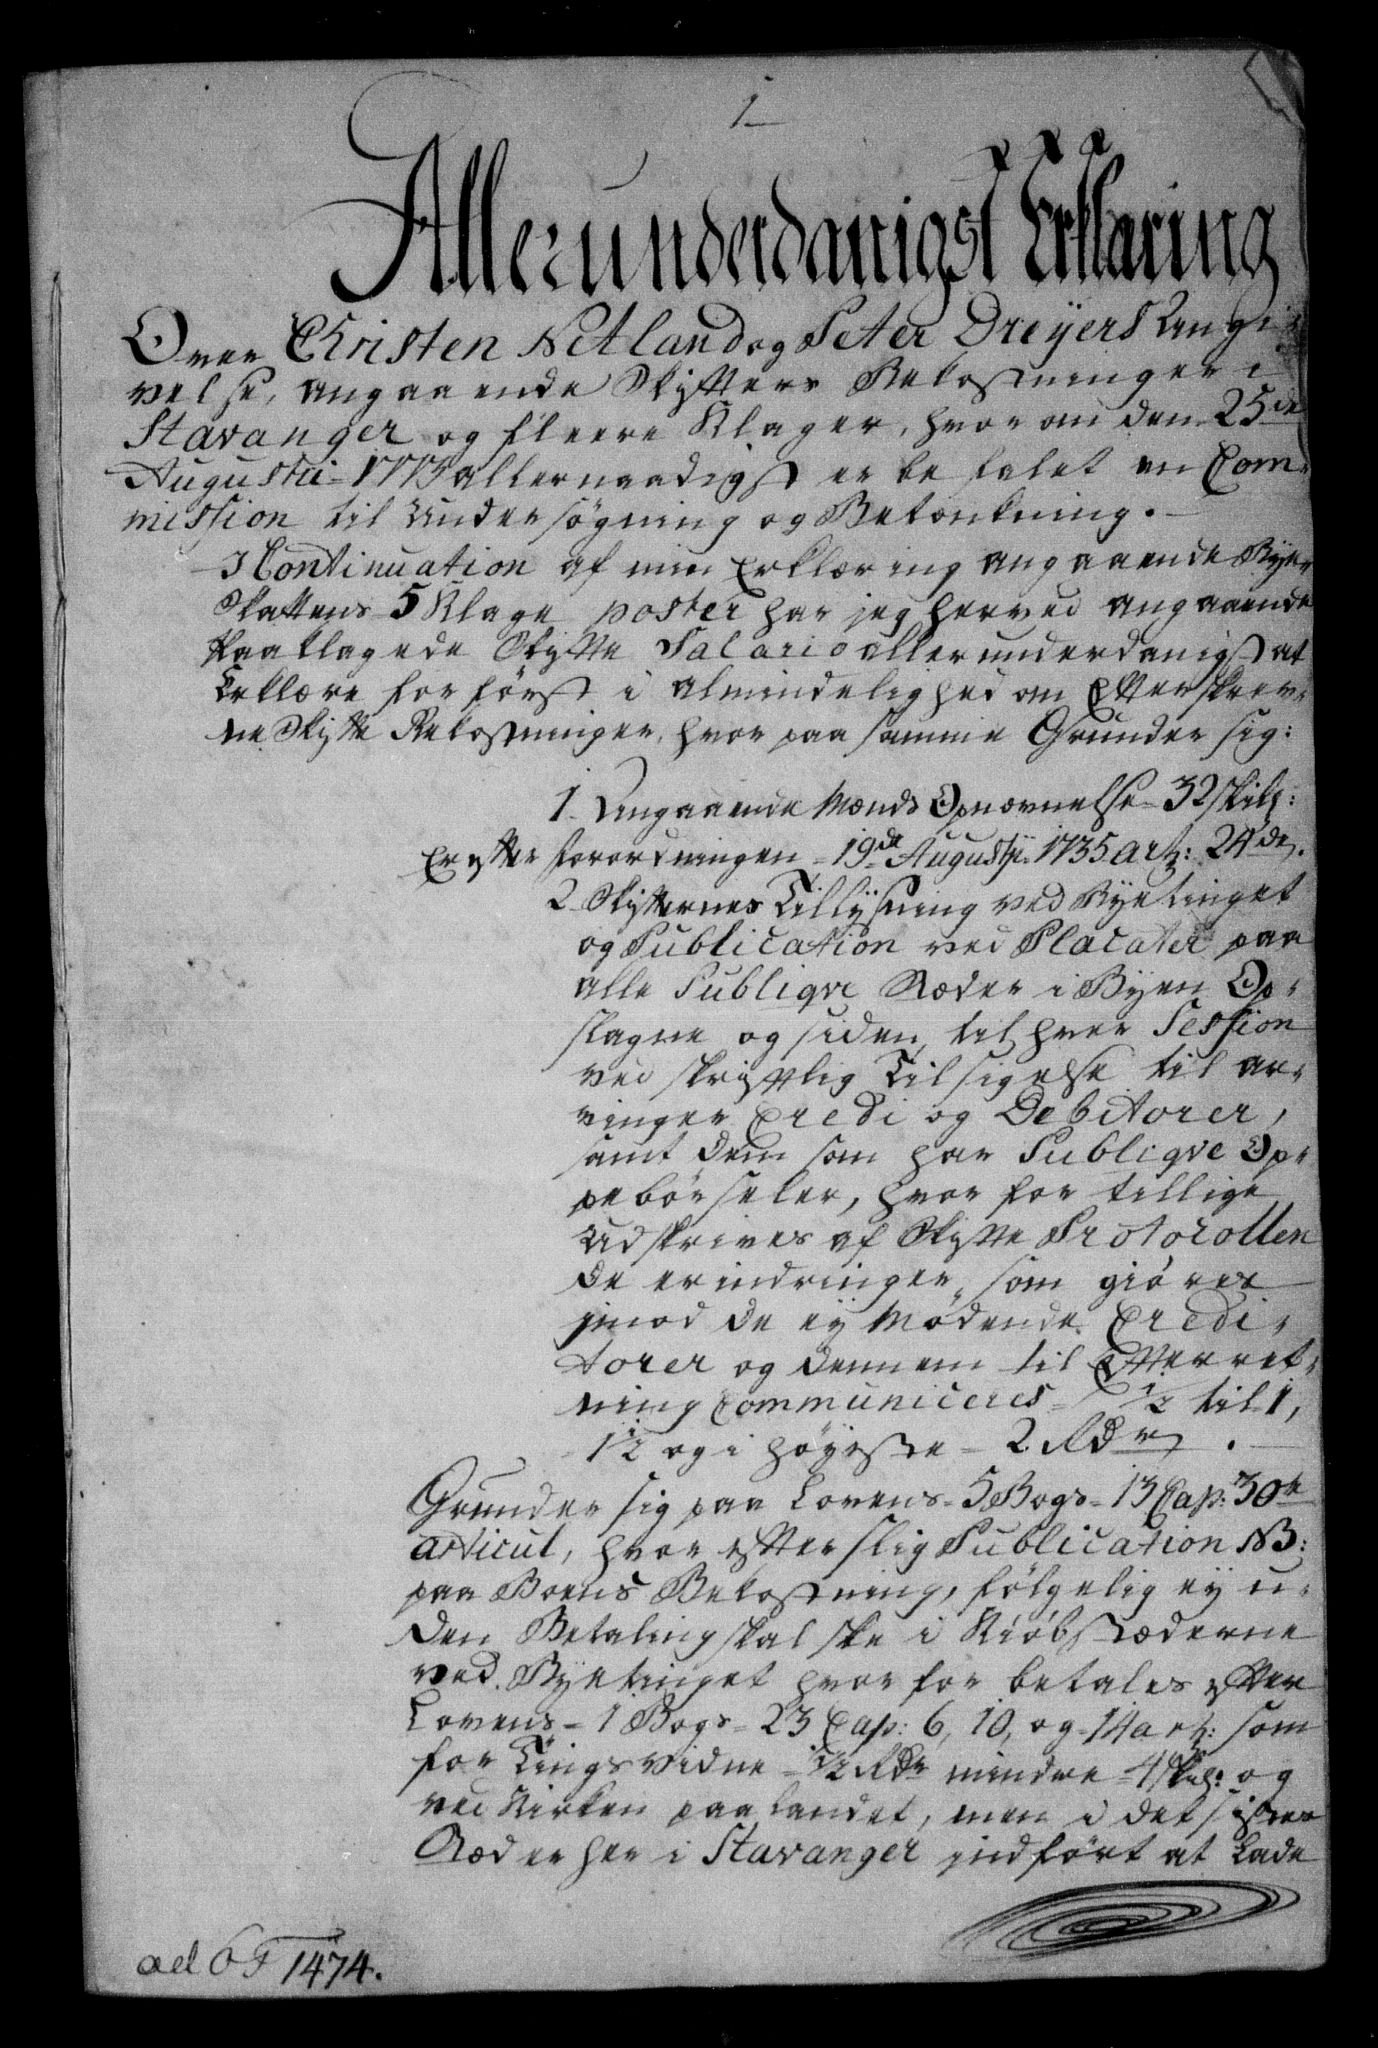 1
Allerunderdanigst Erklæring
Over Christen Netland og Peter Dreÿers Angi-
velse, angaaende Skifters Bekostninger i
Stavanger og fleere Klager, hvor om den 25de
Augusti 1773 allernaadigst er befalet en Com-
mission til Undersögning og Betænkning.
I Continuation af min Erklæring angaaende Bÿe
Skattens 5 Klage poster har jeg herved angaaende
Paaklagede Skifte Salario allerunderdanigst at
Erklære for først i Almindelighed om Efterskrev-
ne Skifte Bekostninger, hvor paa samme Grunder sig:
1. Angaaende Mænds Opnævnelse 32 skill:
Er efter Forordningen 19de Augusti 1735 art: 24de.
2 Skifternes Tillÿsning ved Bÿetinget
og Publication ved Placater paa
alle Publiqve Stæder i Bÿen Op-
slagne og siden til hver Session
ved skriftlig Tilsigelse til Ar-
vinger Credi og Debitorer,
samt dem som har Publiqve Op-
pebörseler, hvor for tillige
Udskrives af Skifte Protocollen
de erindringer, som giöres
imod de eÿ Mødende Credi-
torer og dennem til Efterret-
ning Communiceres 1/2 til 1,
1 1/2 og i høÿeste 2 Rdr.
Grunder sig paa Lovens 5 Bogs 13 Cap: 30te
articul, hvor efter slig Publication NB:
paa Boens Bekostning, følgelig eÿ u-
den Betaling skal ske i Kiøbstæderne
ved Bÿetinget hvor for betales efter
Lovens 1 Bogs 23 Cap: 6, 10, og 14 art: som
for Tingsvidne 1/2 Rdr mindre 4 skil: og
ved Kirken paa Landet, men i det sidstes
Stæd er her i Stavanger indført at Lade
ad 6 F 1474.